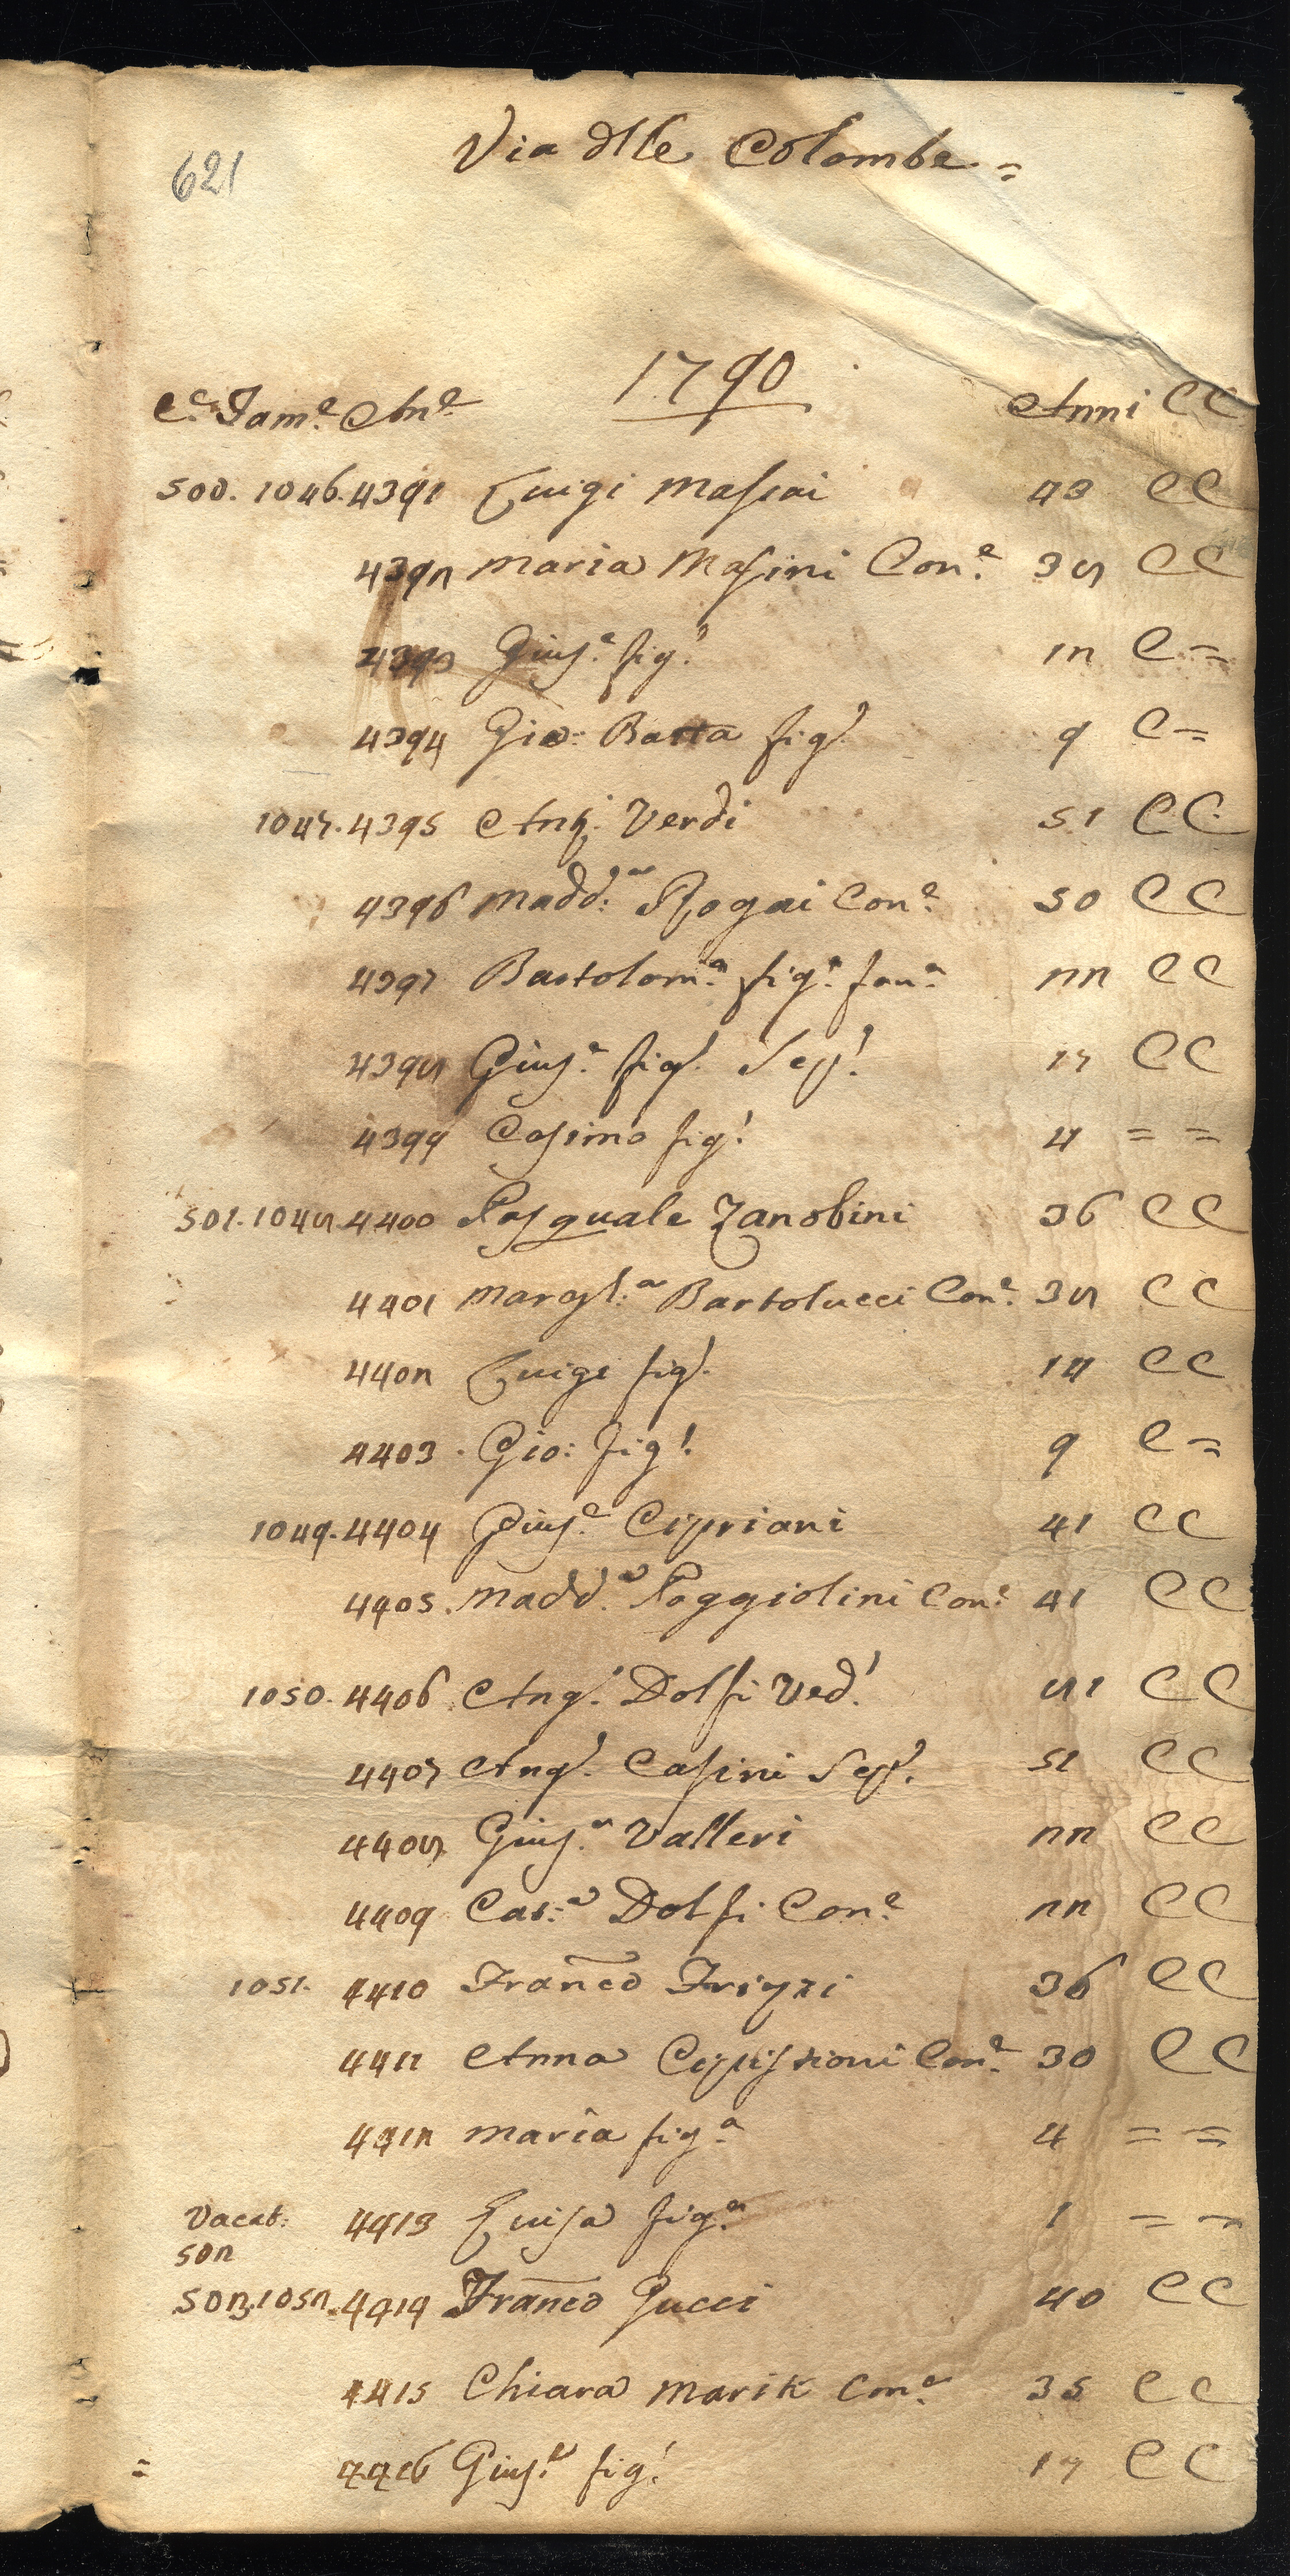 621
Via dlle Colombe =
1790
Ce. Fame. Ane. Anni CC
500. 1046. 4391 Luigi Massai 43 CC
4392 Maria Masini Cone. 38 CC
4393 Giuse. fig. 12 C =
4394 Gio: Batta figl. 9 C =
1047. 4395 Ang. Verdi 51 CC
4396 Madd:a Rogai Cone. 50 CC
4397 Bartolom.a fig.a 22 CC
4398 Giuse. figl. Sep. 17 CC
4399 Cosimo fig. 4 = =
501. 1048 4400 Pasquale Zanobini 36 CC
4401 Margh.a Bartolucci Cone. 38 CC
4402 Luigi figl. 14 CC
4403 Gio: figl. 9 C =
1049. 4404 Giuse. Cipriani 41 CC
4405. Madd.a Poggiolini Cone. 41 CC
1050. 4406 Ang. Dolfi Ved. 81 CC
4407 Ang. Casini Sep. 51 CC
4408 Gius.e Valleri 22 CC
4409 Cat:a Dolfi Cone. 22 CC
1051. 4410 Franco 36 CC
4411 Anna Cone. 30 CC
4412 Maria fig.a 4 = =
Vacat: 4413 Luisa fig.a 1 = =
502
503. 1052. 4414 Franco Pucci 40 CC
4415 Chiara Marik Cone. 35 CC
= 4416 Giuse. fig. 17 CC